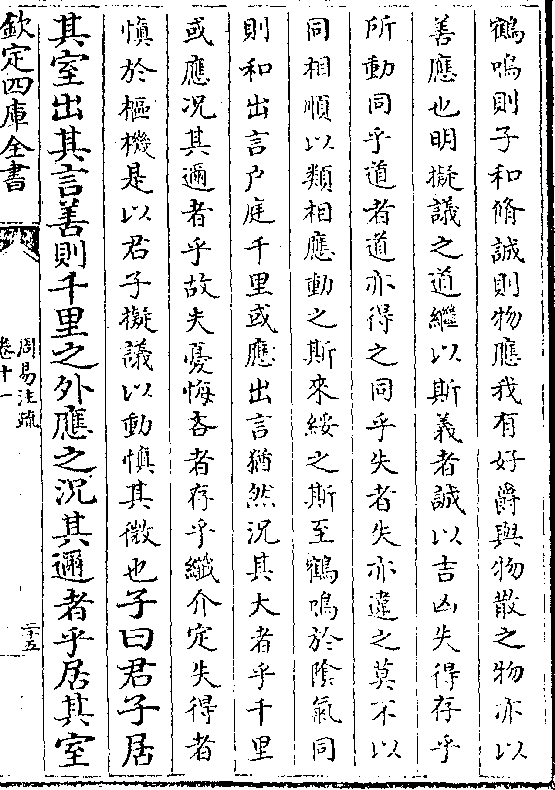 鶴鳴則子和脩誠則物應我有好爵與物散之物亦以
善應也明擬議之道繼以斯義者誠以吉凶失得存乎
所動同乎道者道亦得之同乎失者失亦違之莫不以
同相順以類相應動之斯來綏之斯至鶴鳴於隂氣同
則和出言戸庭千里或應出言猶然況其大者乎千里
或應况其邇者乎故夫憂悔吝者存乎纖介定失得者
慎於樞機是以君子擬議以動慎其微也子曰君子居
其室出其言善則千里之外應之況其邇者乎居其室
欽定四庫全書
周易注疏
卷十一
二十五